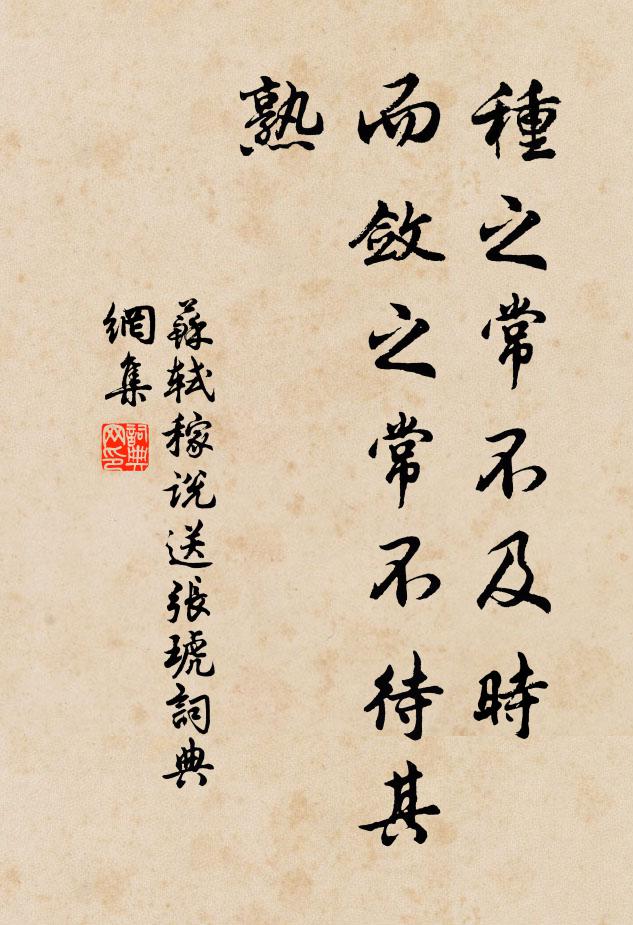 種之常不及時
而斂之常不待其
熟
蘇軾稼说送張琥詞典
網集
詞典
网印